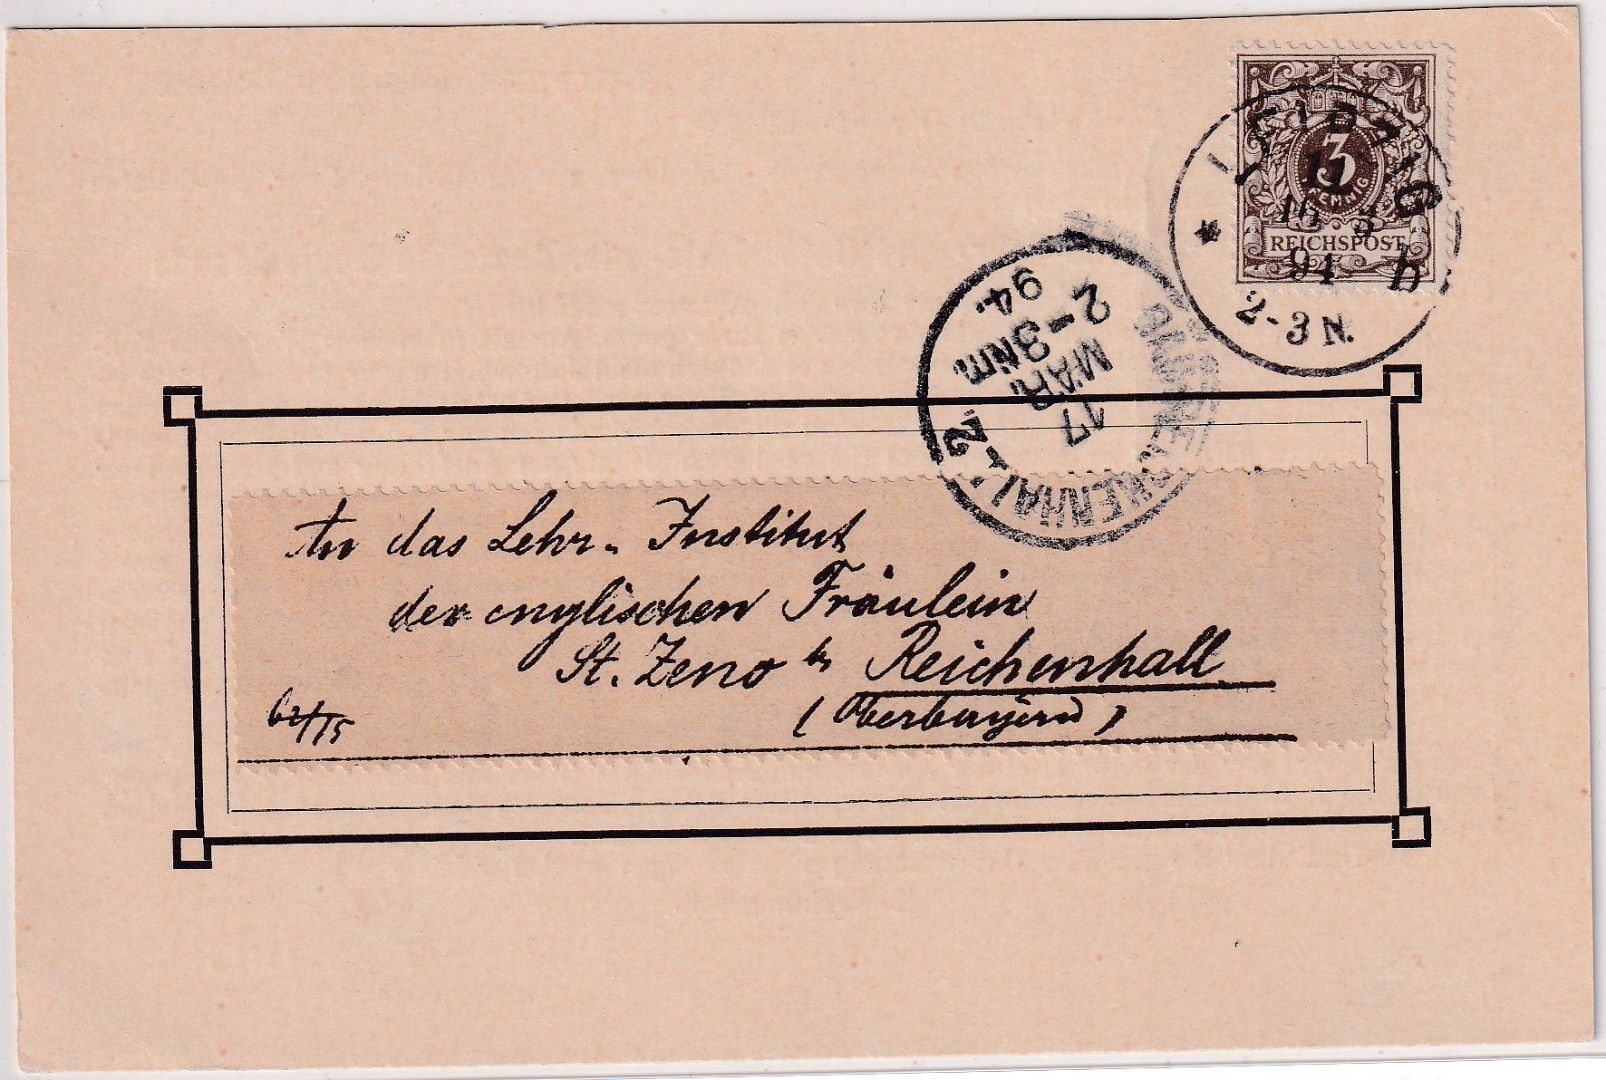 LEIPZIG
11
3
PFENNIG
16 3
REICHSPOST
94 b
2-3 N.
REICHENHALL 2.
17
MÄR.
2-3 Nm.
94.
An das Lehr-Institut
der englischen Fräulein
St. Zeno b. Reichenhall
(Oberbayern)
62/15